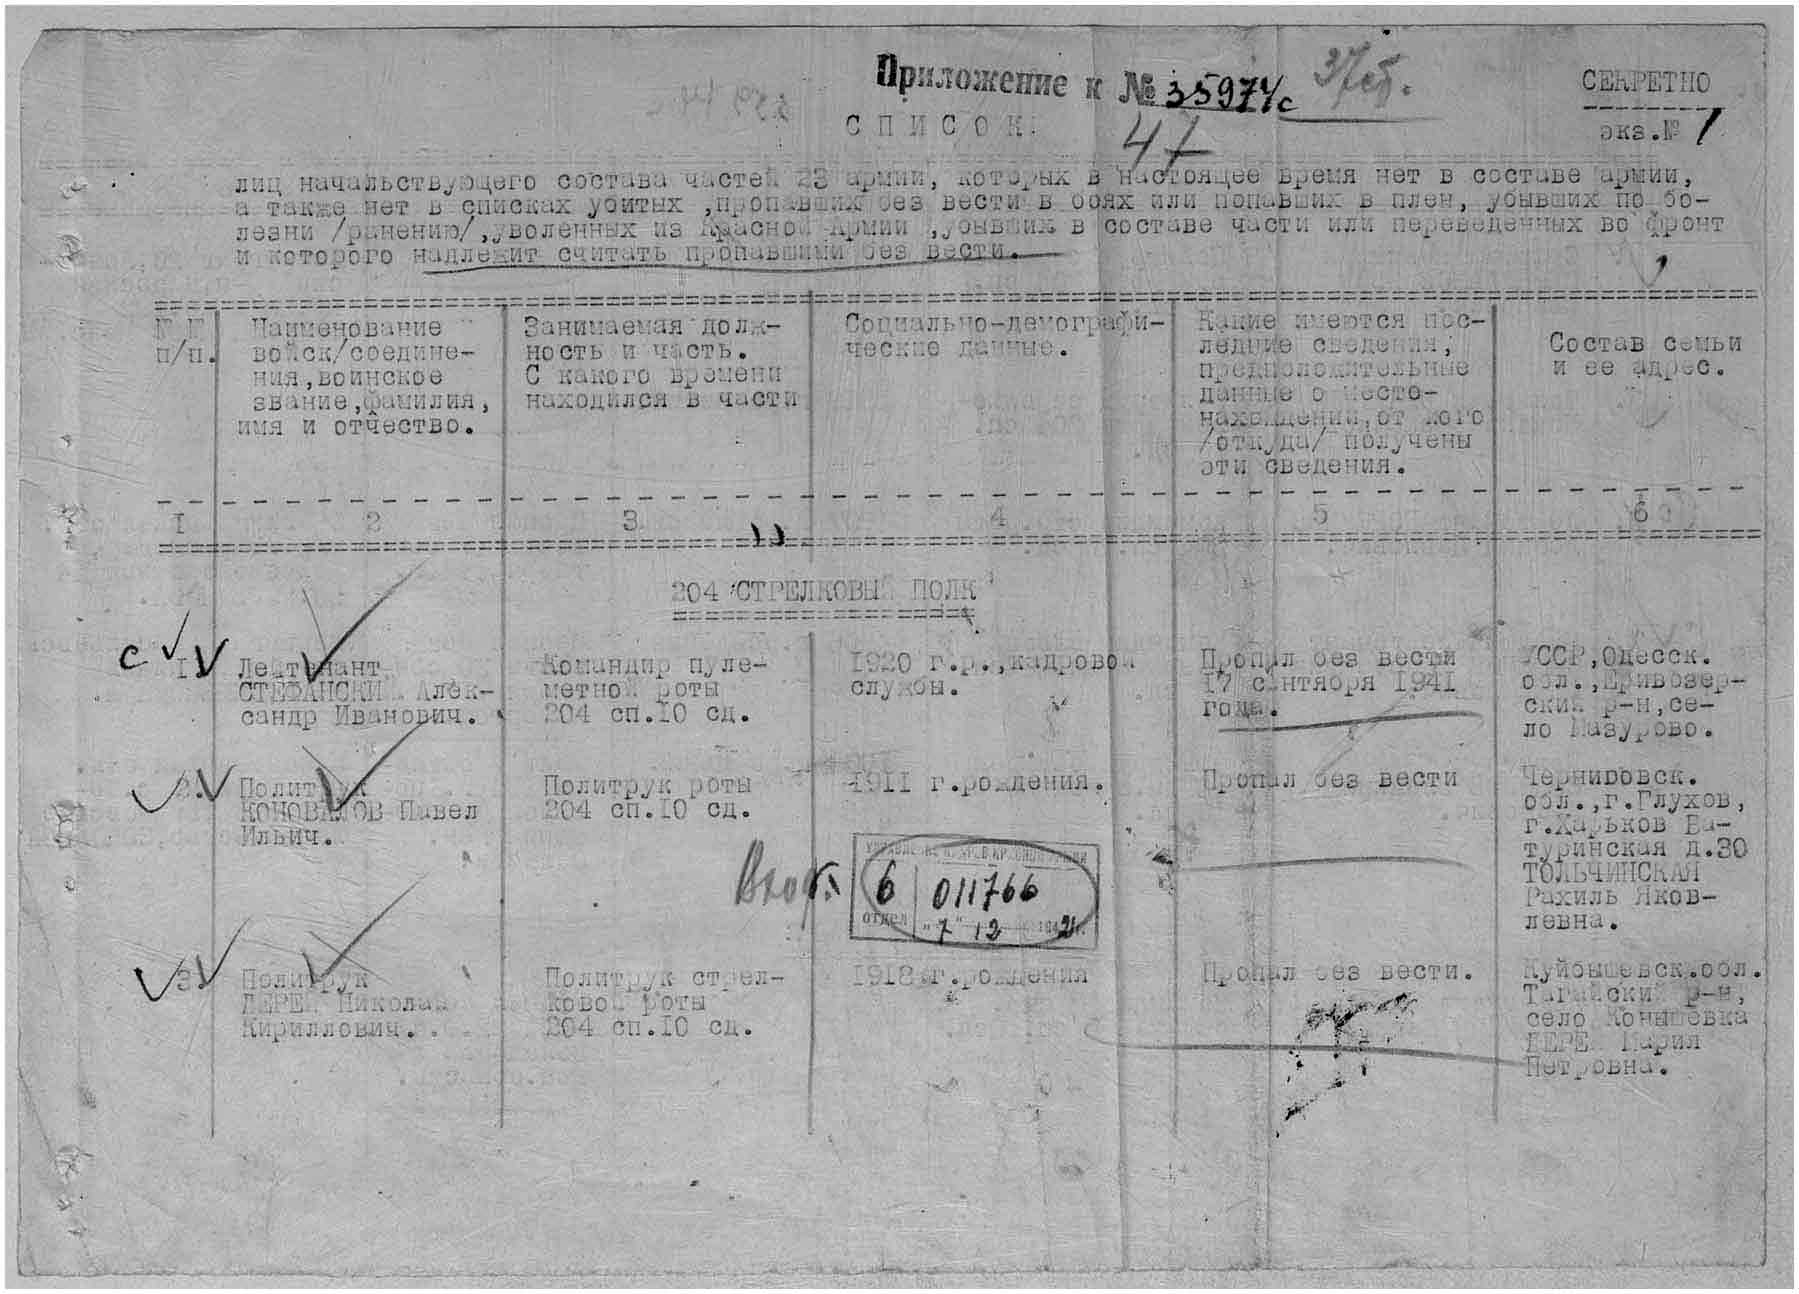 Приложение к № 35974с
СЕКРЕТНО
СПИСОК
экз.№ 1
47
лиц начальствующего состава частей 23 армии, которых в настоящее время нет в составе армии,
а также нет в списках убитых ,пропавших без вести в боях или попавших в плен, убывших по бо-
лезни /ранению/,уволенных из Красной Армии ,убывших в составе части или переведенных во фронт
и которого надлежит считать пропавшими без вести.
№ №
п/п.
Наименование
войск/соедине-
ния,воинское
звание,фамилия,
имя и отчество.
Занимаемая долж-
ность и часть.
С какого времени
находился в части
Социально-демографи-
ческие данные.
Какие имеются пос-
ледние сведения,
предположительные
данные о место-
нахождении,от кого
/откуда/ получены
эти сведения.
Состав семьи
и ее адрес.
I 2 3 4 5 6
204 СТРЕЛКОВЫЙ ПОЛК
с 1.
Лейтенант
СТЕФАНСКИЙ Алек-
сандр Иванович.
Командир пуле-
метной роты
204 сп.I0 сд.
I920 г.р.,кадровой
службы.
Пропал без вести
I7 сентября I94I
года.
УССР,Одесск.
обл.,Кривозер-
ский р-н,се-
ло Мазурово.
2.
Политрук
КОНОВАЛОВ Павел
Ильич.
Политрук роты
204 сп.I0 сд.
I9II г.рождения.
Пропал без вести
Черниговск.
обл.,г.Глухов,
г.Харьков Ба-
туринская д.30
ТОЛЬЧИНСКАЯ
Рахиль Яков-
левна.
Вход.
УПРАВЛЕНИЕ КАДРОВ КРАСНОЙ АРМИИ
6 отдел
011766
"7" 12 1942г.
3.
Политрук
ДЕРЕЙ Николай
Кириллович.
Политрук стрел-
ковой роты
204 сп.I0 сд.
I9I8 г.рождения
Пропал без вести.
Куйбышевск.обл.
Тагайский р-н,
село Конышевка
ДЕРЕЙ Мария
Петровна.